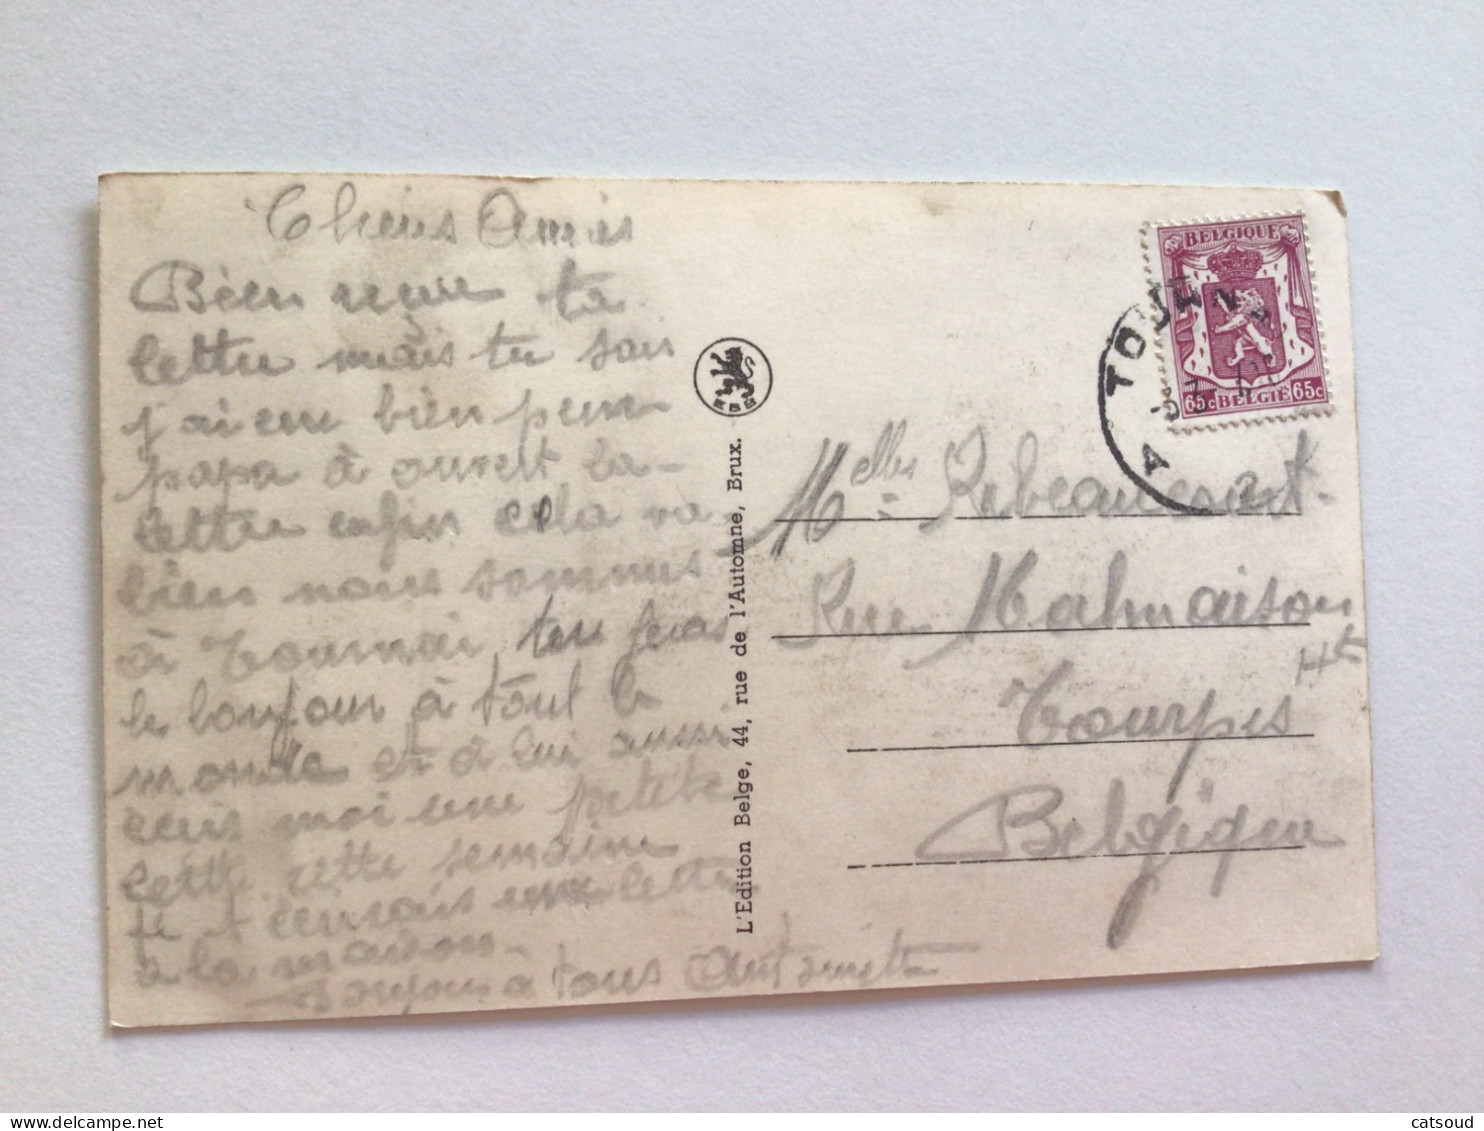 Chers Amis
Bien reçue ta
lettre mais tu sais
j'ai eue bien peur
papa à ouvert la
lettre enfin cela va
bien nous sommes
à Tournai, tu feras
le bonjour à tout le
monde et à lui aussi
ecris moi une petite
lettre cette semaine
je t'enverais une lettre
à la maison
Bonjour à tous Antoinette
L'Edition Belge, 44, rue de l'Automne, Brux.
BELGIQUE
65c BELGIË 65c
TOUR
Melles Rebeaucourt
Rue Malmaison
Hte
Tourpes
Belgique
catsoud